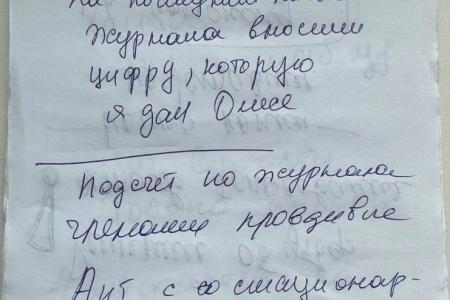 журнала вносим
цифру, которую
я дал Олесе
Подсчет по журналам
правдивые
Акт с со стационар-